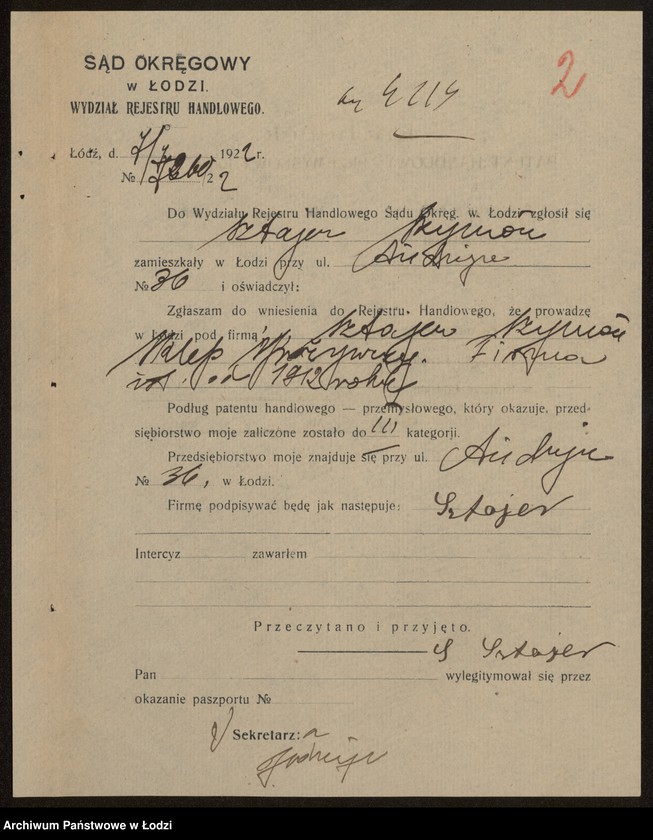 SĄD OKRĘGOWY
w ŁODZI.
WYDZIAŁ REJESTRU HANDLOWEGO.
2
4214
Łódź, d. 7/7 1922 r.
№ /22
Do Wydziału Rejestru Handlowego Sądu Okręg. w Łodzi zgłosił się
Sztajer Szymon
zamieszkały w Łodzi przy ul. Andrzeja
№ 36 i oświadczył:
Zgłaszam do wniesienia do Rejestru Handlowego, że prowadzę
w Łodzi pod firmą: Sztajer Szymon
Sklep Spożywczy. Firma
ist. od 1912 roku
Podług patentu handlowego — przemysłowego, który okazuje, przed-
siębiorstwo moje zaliczone zostało do III kategorji.
Przedsiębiorstwo moje znajduje się przy ul. Andrzeja
№ 36, w Łodzi.
Firmę podpisywać będę jak następuje: Sztajer
Intercyz zawarłem
Przeczytano i przyjęto.
S Sztajer
Pan wylegitymował się przez
okazanie paszportu №
Sekretarz:
Archiwum Państwowe w Łodzi